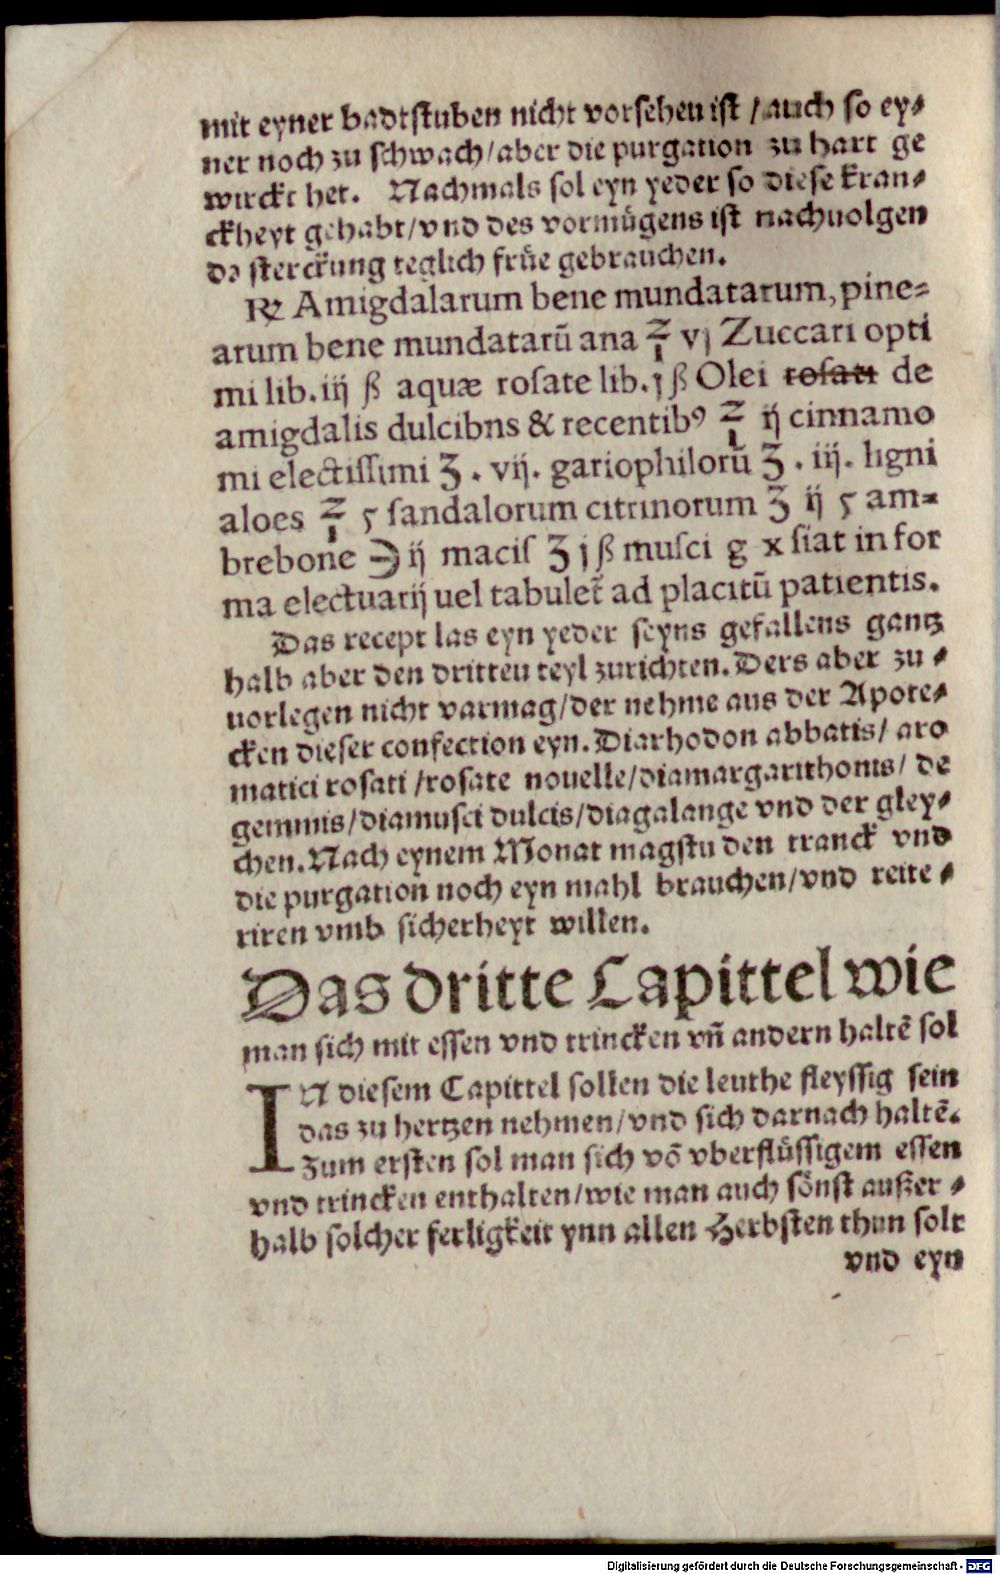 mit eyner badtstuben nicht vorsehen ist / auch so ey⸗
ner noch zu schwach/aber die purgation zu hart ge
wirckt het. Nachmals sol eyn yeder so diese kran⸗
ckheyt gehabt/vnd des vormügens ist nachuolgen
de sterckung teglich früe gebrauchen.
℞ Amigdalarum bene mundatarum, pine⸗
arum bene mundatarū ana ℥ vj Zuccari opti
mi lib. iij ß aquæ rosate lib. j ß Olei rosati de
amigdalis dulcibns & recentibꝰ ℥ ij cinnamo
mi electissimi ʒ . vij. gariophilorū ʒ . iij. ligni
aloes ℥ ς sandalorum citrinorum ʒ ij ς am⸗
brebone ℈ ij macis ʒ j ß musci g x siat in for
ma electuarij uel tabulet̄ ad placitū patientis.
Das recept las eyn yeder seyns gefallens gantz
halb aber den dritten teyl zurichten. Ders aber zu ⸗
uorlegen nicht varmag/der nehme aus der Apote⸗
cken dieser confection eyn. Diarhodon abbatis/ aro
matici rosati /rosate nouelle/diamargarithonis/ de
gemmis/diamusci dulcis/diagalange vnd der gley⸗
chen. Nach eynem Monat magstu den tranck vnd
die purgation noch eyn mahl brauchen/vnd reite ⸗
riren vmb sicherheyt willen.
Das dritte Capittel wie
man sich mit essen vnd trincken vñ andern haltē sol
IN diesem Capittel sollen die leuthe fleyssig sein
das zu hertzen nehmen/vnd sich darnach haltē.
Zum ersten sol man sich vō vberflüssigem essen
vnd trincken enthalten/wie man auch sönst außer ⸗
halb solcher ferligkeit ynn allen Herbsten thun solt
vnd eyn
Digitalisierung gefördert durch die Deutsche Forschungsgemeinschaft - DFG